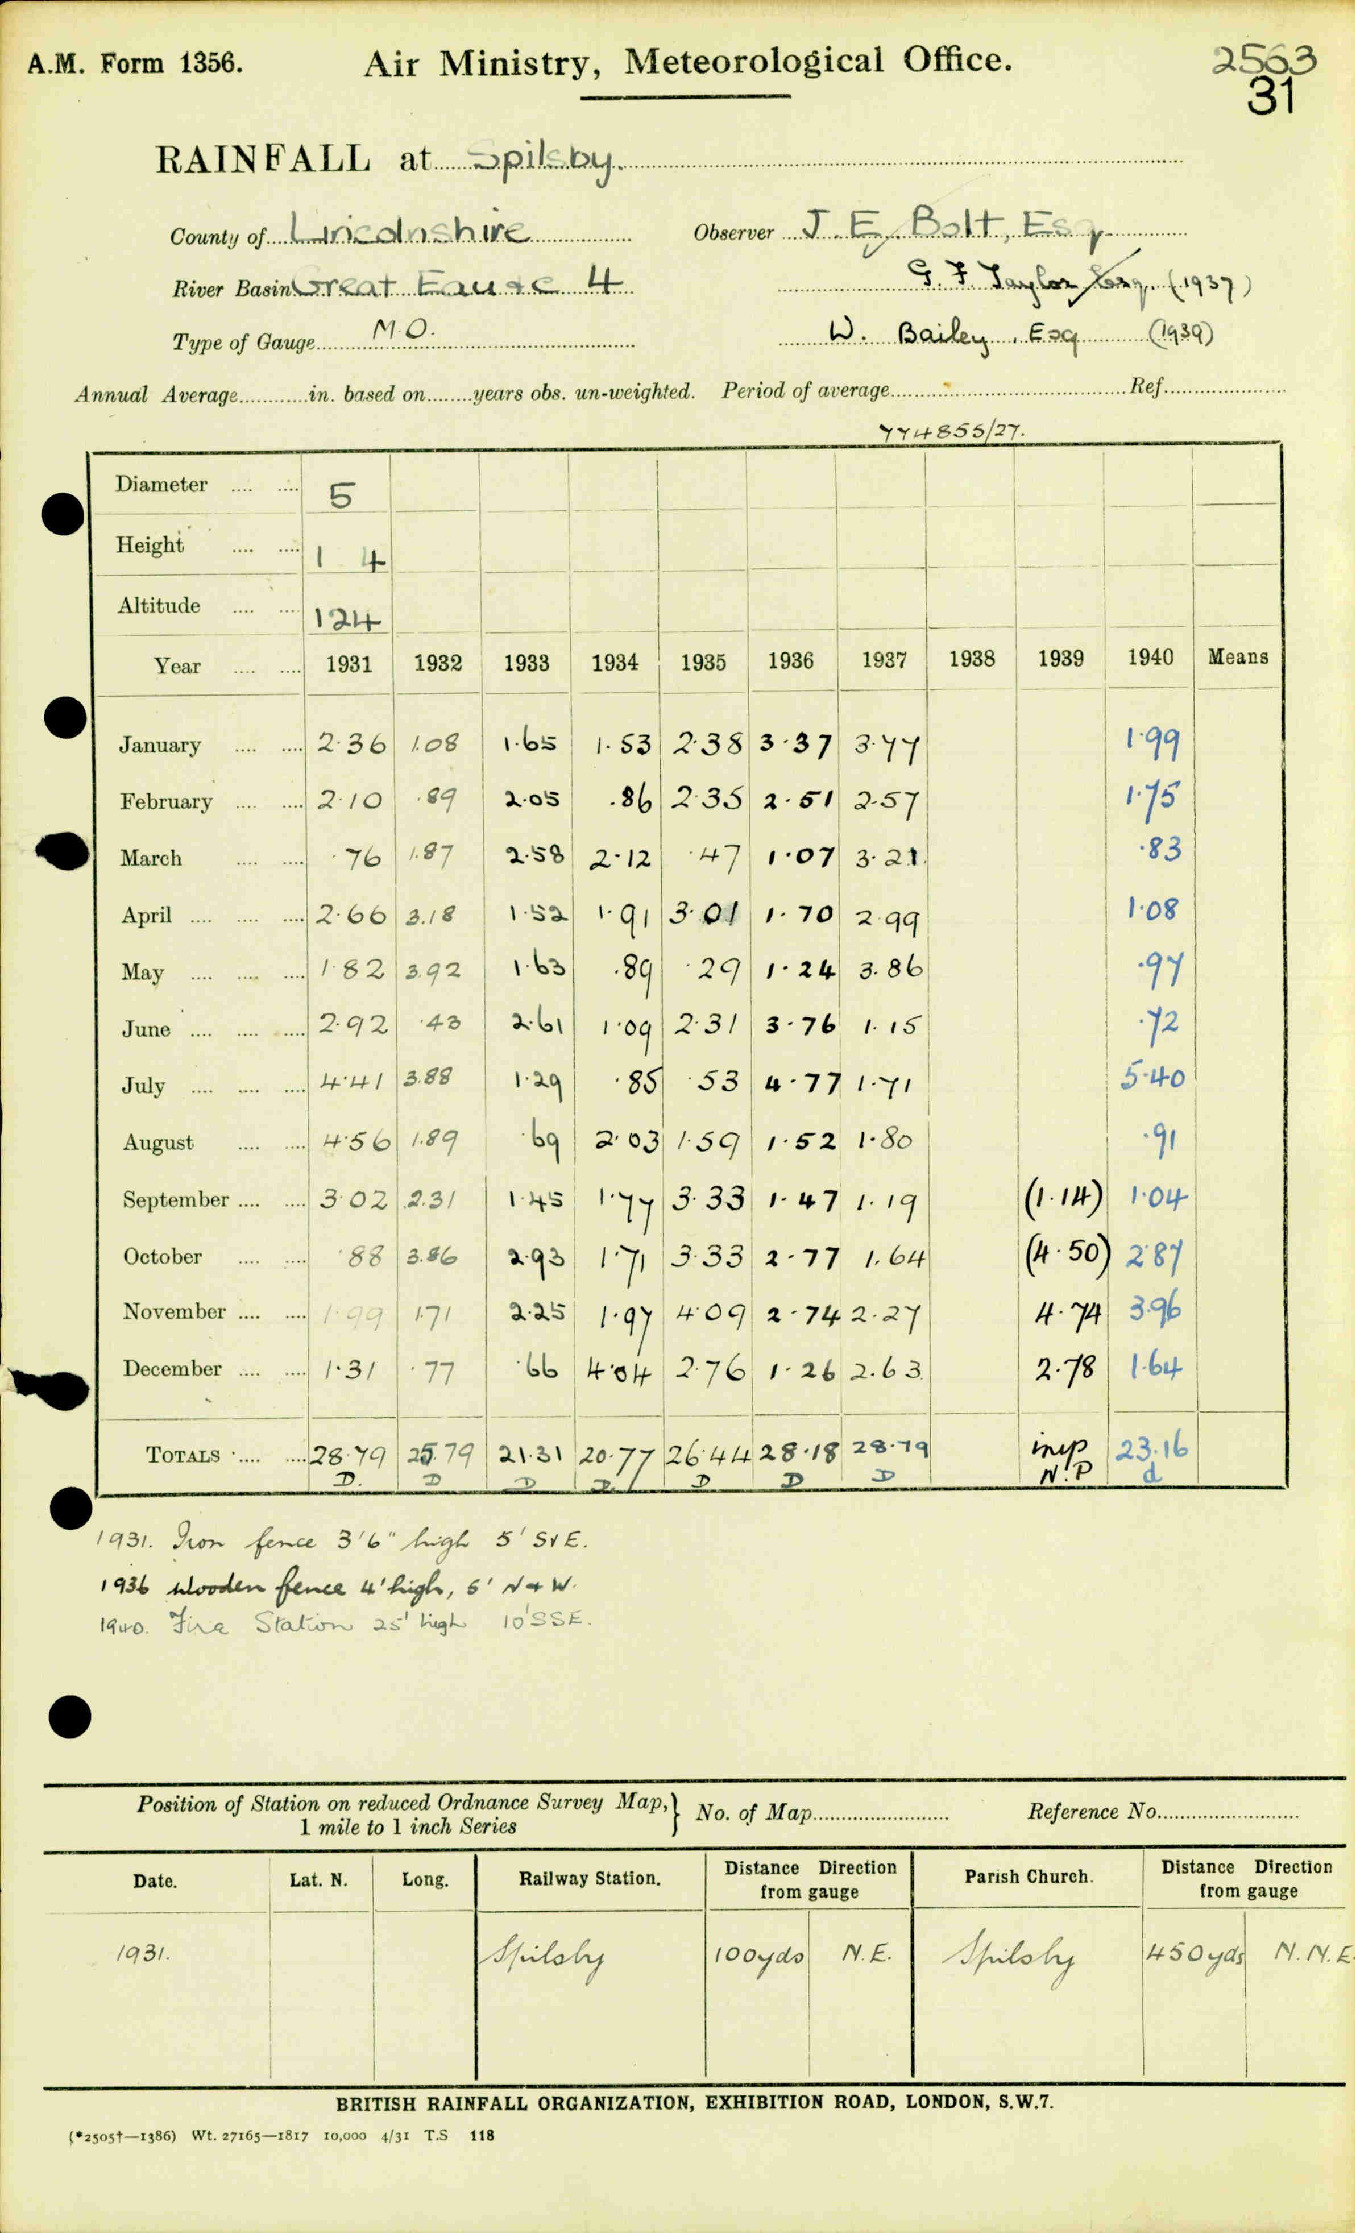 A.M. Form 1356. Air Ministry, Meteorological Office. 2563
31
RAINFALL at Spilsby.
County of Lincolnshire Observer J. E. Bolt, Esq.
River Basin Great Eau &c 4 G. F. Taylor Esq. (1937)
Type of Gauge M.O. W. Bailey, Esq (1939)
Annual Average in. based on years obs. un-weighted. Period of average Ref.
774855/27.
Diameter 5
Height 1 4
Altitude 124
Year 1931 1932 1933 1934 1935 1936 1937 1938 1939 1940 Means
January 2·36 1.08 1.65 1.53 2.38 3.37 3.77 1.99
February 2.10 .89 2.05 .86 2.35 2.51 2.57 1.75
March .76 1.87 2.58 2.12 .47 1.07 3.21 .83
April 2.66 3.18 1.52 1.91 3.01 1.70 2.99 1.08
May 1.82 3.92 1.63 .89 .29 1.24 3.86 .97
June 2.92 .43 2.61 1.09 2.31 3.76 1.15 .72
July 4.41 3.88 1.29 .85 .53 4.77 1.71 5.40
August 4.56 1.89 .69 2.03 1.59 1.52 1.80 .91
September 3.02 2.31 1.45 1.77 3.33 1.47 1.19 (1.14) 1.04
October .88 3.86 2.93 1.71 3.33 2.77 1.64 (4.50) 2.87
November 1.99 1.71 2.25 1.97 4.09 2.74 2.27 4.74 3.96
December 1.31 .77 .66 4.04 2.76 1.26 2.63 2.78 1.64
TOTALS 28.79 25.79 21.31 20.77 26.44 28.18 28.79 inc 23.16
D. D D D D D D N.P d
1931. Iron fence 3'6" high 5' S & E.
1936 Wooden fence 4' high, 6' N + W.
1940. Fire Station 25' high 10' SSE.
Position of Station on reduced Ordnance Survey Map,} No. of Map Reference No.
1 mile to 1 inch Series
Date. Lat. N. Long. Railway Station. Distance Direction from gauge Parish Church. Distance Direction from gauge
1931. Spilsby 100yds N.E. Spilsby 450yds N.N.E.
BRITISH RAINFALL ORGANIZATION, EXHIBITION ROAD, LONDON, S.W.7.
(*2505†—1386) Wt. 27165—1817 10,000 4/31 T.S 118